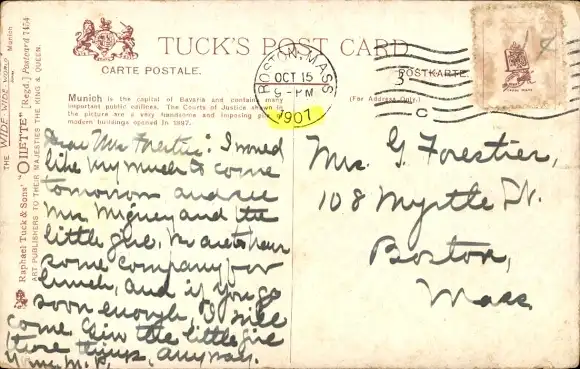 TUCK'S POST CARD
CARTE POSTALE.
POSTKARTE.
BOSTON, MASS.
OCT 15
9-PM
1907
C
Munich is the capital of Bavaria and contains many
important public edifices. The Courts of Justice shown in
the picture are a very handsome and imposing pile of
modern buildings opened in 1897.
(For Address Only.)
THE "WIDE WIDE WORLD" Munich
Raphael Tuck & Sons' "OILETTE" [Regd.] Postcard 7454
ART PUBLISHERS TO THEIR MAJESTIES THE KING & QUEEN.
Dear Mrs. Forestier: I would
like very much to come
tomorrow and see
Mrs. and the
little girl. We are to have
some company for
lunch, and if you go
soon enough, I will
come. Give the little girl
these things, anyway.
Yours, M. P.
Mrs. G. Forestier,
108 Myrtle St.
Boston,
Mass.